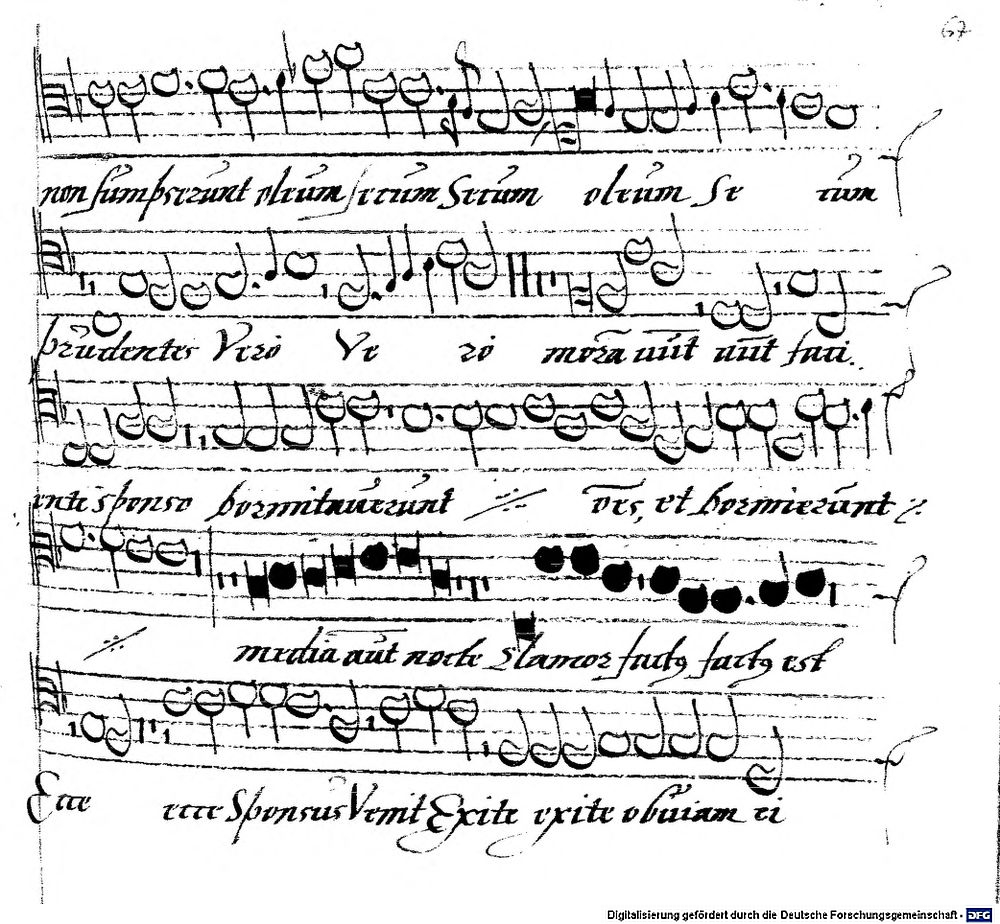 67
non sumpserunt oleum secum Secum oleum Se cum
prudentes Vero Ve ro mora aut aut faci
ente sponso dormitaverunt ·//· oes, et dormierunt ·//·
·//· media aut nocte Clamor factus factus est
Ecce ecce Sponsus Venit Exite exite obviam ei
Digitalisierung gefördert durch die Deutsche Forschungsgemeinschaft - DFG